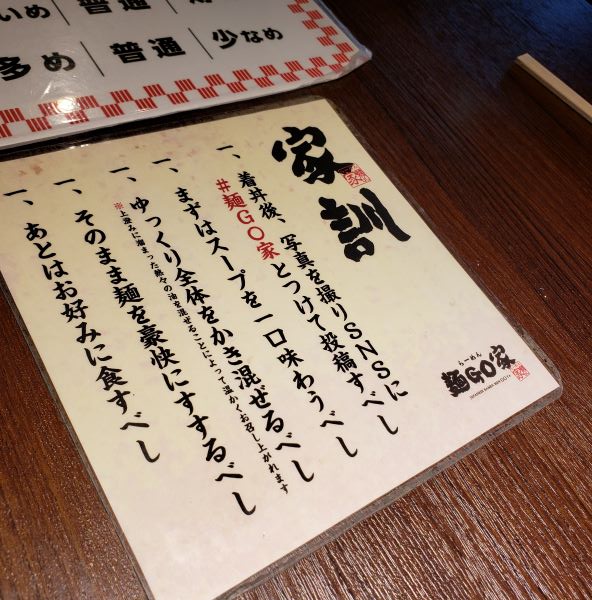 いめ 普通
多め 普通 少なめ
家訓
一、着丼後、写真を撮りSNSに
#麺GO家とつけて投稿すべし
一、まずはスープを一口味わうべし
一、ゆっくり全体をかき混ぜるべし
※上澄みに溜まった熱々の油を混ぜることによって温かくお召し上がれます
一、そのまま麺を豪快にすするべし
一、あとはお好みに食すべし
らーめん
麺GO家